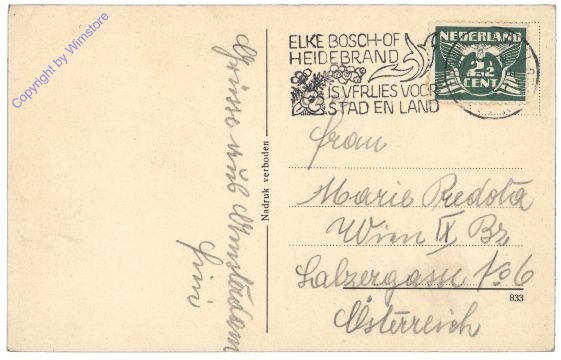 Copyright by Wimstore
Grüsse aus Amsterdam
Fini
Nadruk verboden
ELKE BOSCH-OF
HEIDEBRAND
IS VERLIES VOOR
STAD EN LAND
NEDERLAND
2½
CENT
Frau
Marie Predota
Wien IX Bz
No 6
833
Österreich